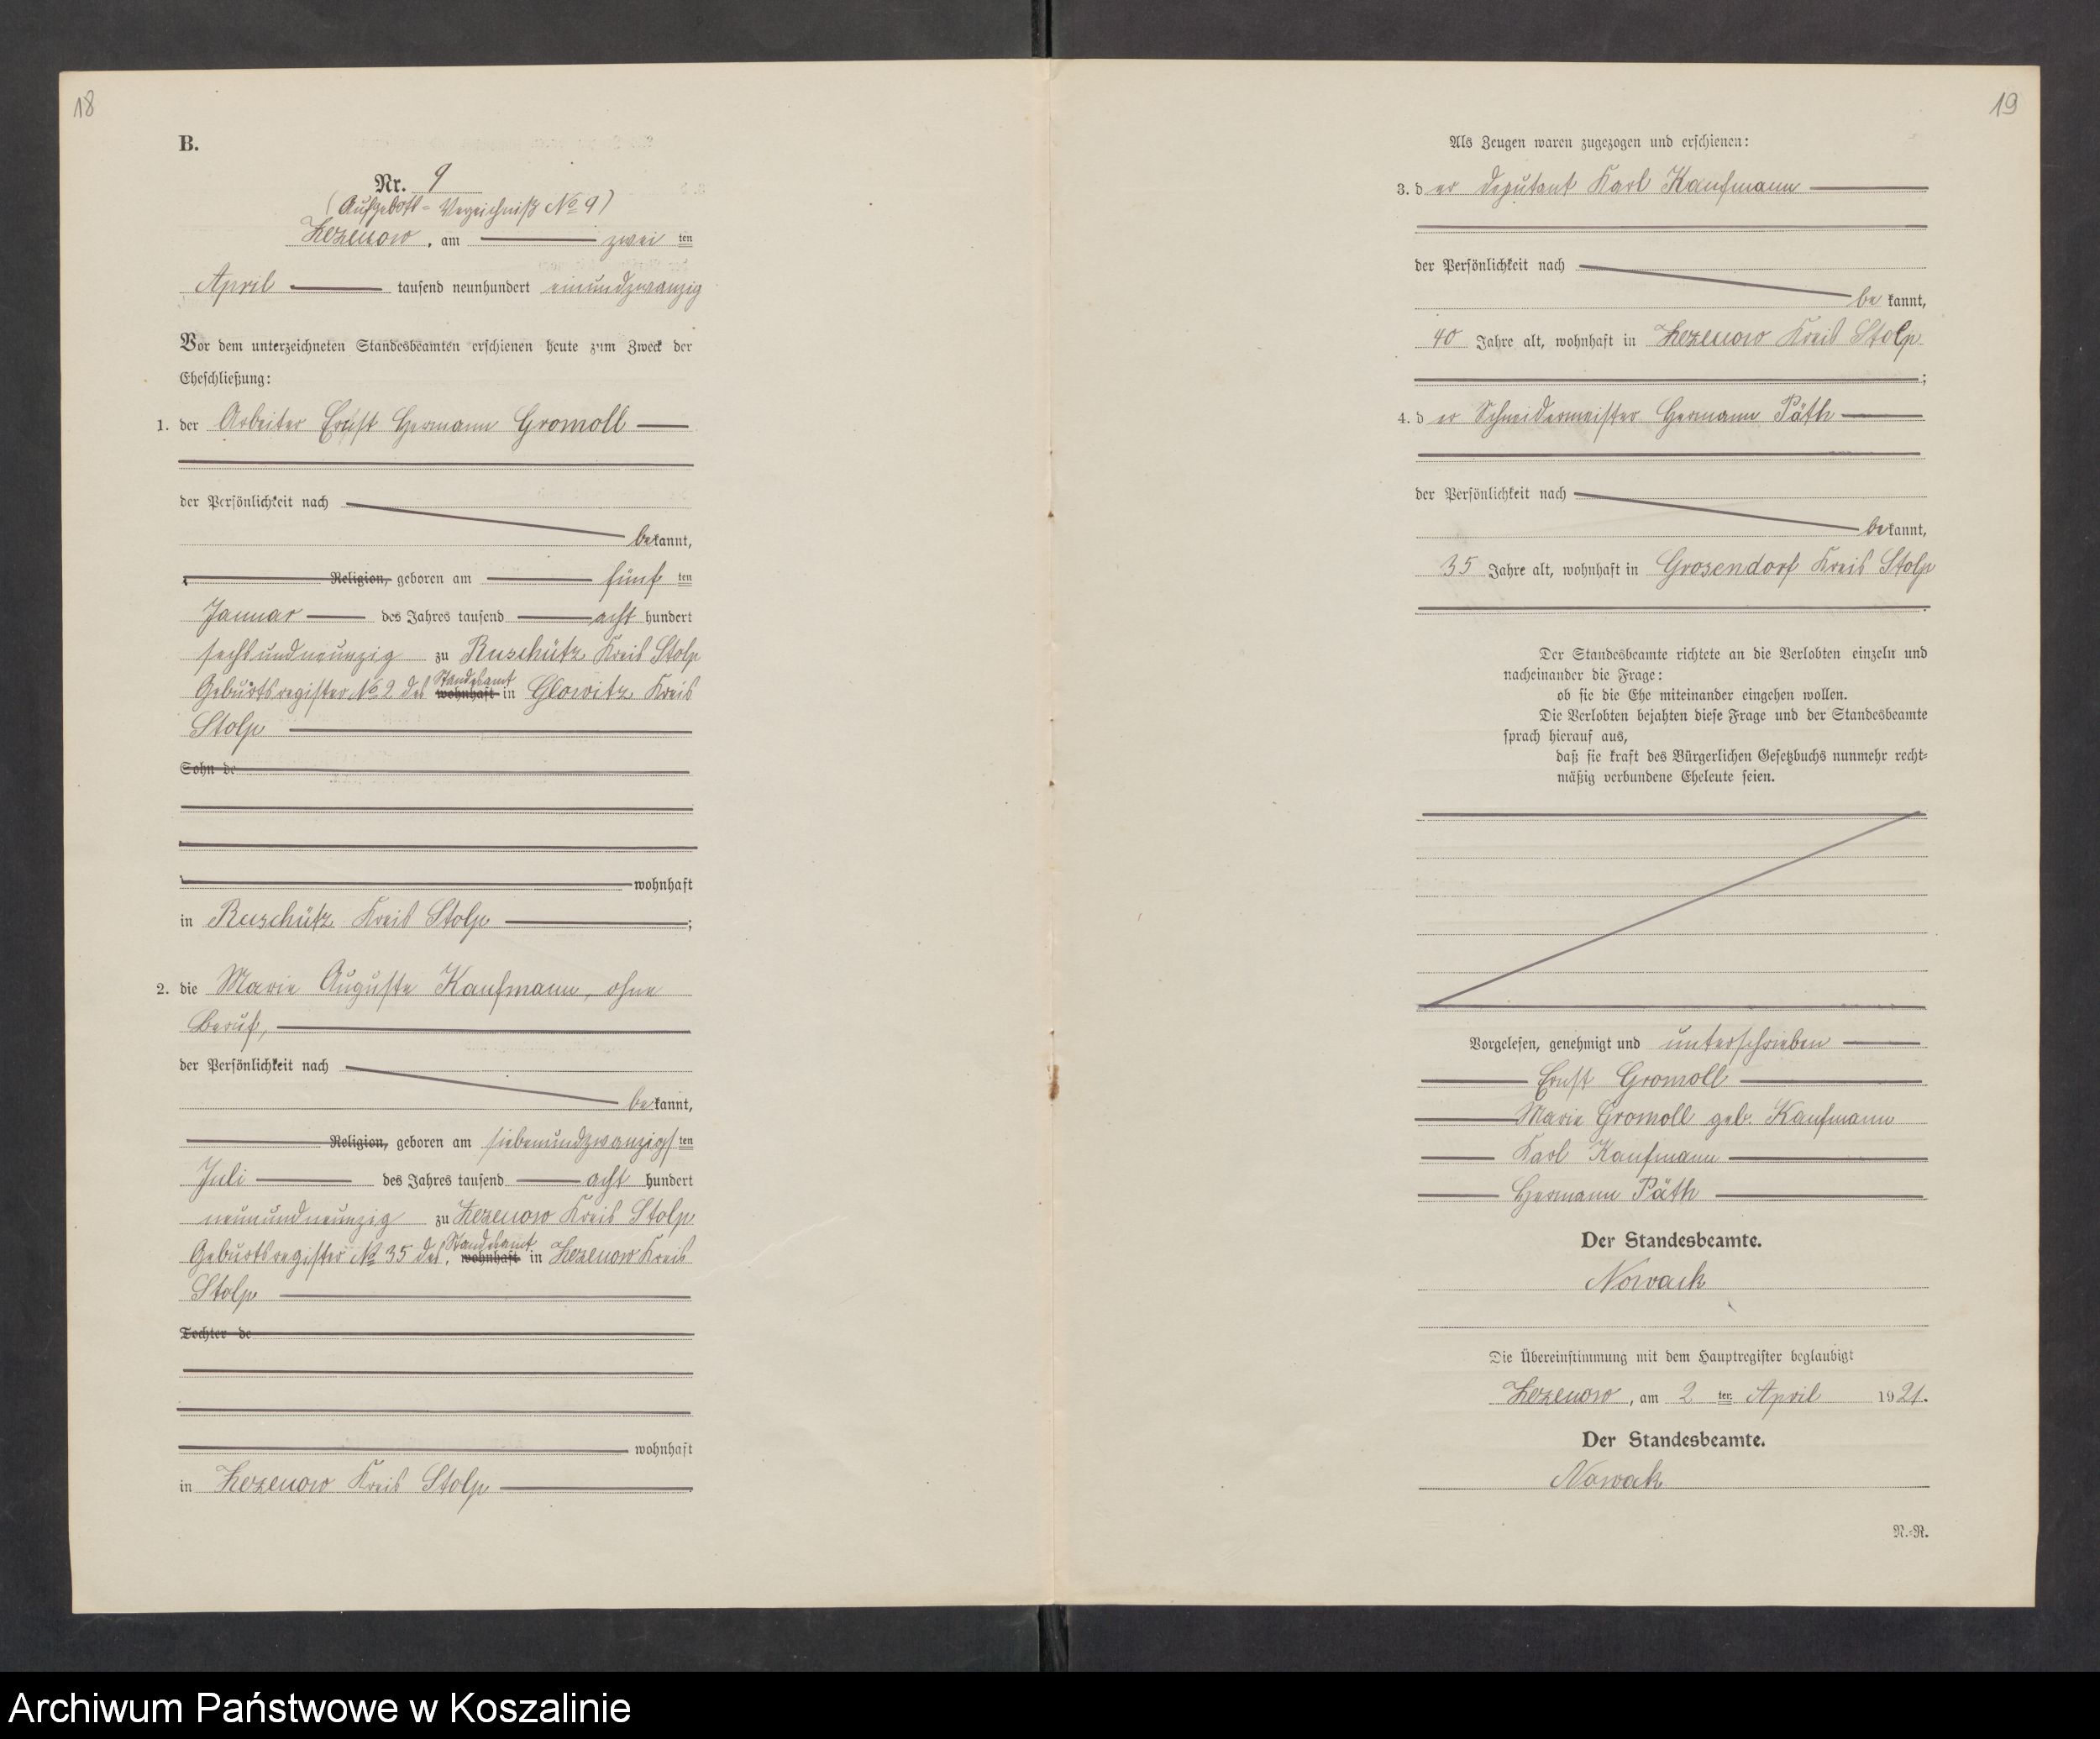 18
B.
Nr. 9
(Aufgebots-Verzeichniß No 9)
Zezenow, am zwei ten
April tausend neunhundert einundzwanzig
Vor dem unterzeichneten Standesbeamten erschienen heute zum Zweck der
Eheschließung:
1. der Arbeiter Ernst Hermann Gromoll
der Persönlichkeit nach
bekannt,
Religion, geboren am fünf ten
Januar des Jahres tausend acht hundert
sechsundneunzig zu Ruschütz Kreis Stolp
Geburtsregister No 2 des Standesamt wohnhaft in Glowitz Kreis
Stolp
Sohn de
wohnhaft
in Ruschütz Kreis Stolp ;
2. die Marie Auguste Kaufmann, ohne
Beruf,
der Persönlichkeit nach
bekannt,
Religion, geboren am siebenundzwanzigsten
Juli des Jahres tausend acht hundert
neunundneunzig zu Zezenow Kreis Stolp
Geburtsregister No 35 des, Standesamt wohnhaft in Zezenow Kreis
Stolp
Tochter de
wohnhaft
in Zezenow Kreis Stolp
19
Als Zeugen waren zugezogen und erschienen:
3. der Deputant Karl Kaufmann
der Persönlichkeit nach
bekannt,
40 Jahre alt, wohnhaft in Zezenow Kreis Stolp
;
4. der Schneidermeister Hermann Päth
der Persönlichkeit nach
bekannt,
35 Jahre alt, wohnhaft in Grosendorf Kreis Stolp
.
Der Standesbeamte richtete an die Verlobten einzeln und
nacheinander die Frage:
ob sie die Ehe miteinander eingehen wollen.
Die Verlobten bejahten diese Frage und der Standesbeamte
sprach hierauf aus,
daß sie kraft des Bürgerlichen Gesetzbuchs nunmehr recht-
mäßig verbundene Eheleute seien.
Vorgelesen, genehmigt und unterschrieben
Ernst Gromoll
Marie Gromoll geb. Kaufmann
Karl Kaufmann
Hermann Päth
Der Standesbeamte.
Nowack
Die Übereinstimmung mit dem Hauptregister beglaubigt
Zezenow, am 2 ten April 1921.
Der Standesbeamte.
Nowack
N.-R.
Archiwum Państwowe w Koszalinie